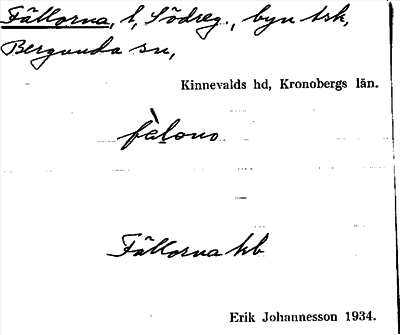 Fällorna, t, Södreg., byn tsk,
Bergunda sn,
Kinnevalds hd, Kronobergs län.
fàlono
Fällorna kb
Erik Johannesson 1934.